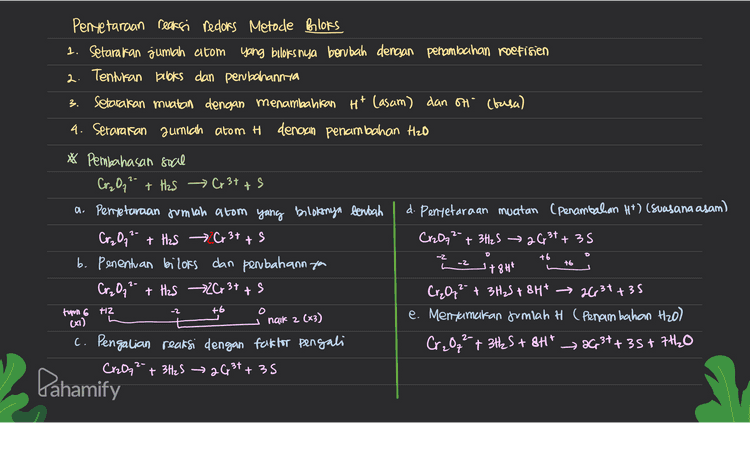 Penyetaraan reaksi redoks Metode Biloks
1. Setarakan jumlah atom yang biloksnya berubah dengan penambahan koefisien
2. Tentukan biloks dan perubahannya
3. Setarakan muatan dengan menambahkan H⁺ (asam) dan OH⁻ (basa)
4. Setarakan jumlah atom H dengan penambahan H₂O
* Pembahasan soal
Cr₂O₇²⁻ + H₂S → Cr³⁺ + S
a. Penyetaraan jumlah atom yang biloksnya berubah
Cr₂O₇²⁻ + H₂S → 2Cr³⁺ + S
b. Penentuan biloks dan perubahannya
Cr₂O₇²⁻ + H₂S → 2Cr³⁺ + S
turun 6 (x1) +12 -2 +6 0 naik 2 (x3)
c. Pengalian reaksi dengan faktor pengali
Cr₂O₇²⁻ + 3H₂S → 2Cr³⁺ + 3S
d. Penyetaraan muatan (penambahan H⁺) (suasana asam)
Cr₂O₇²⁻ + 3H₂S → 2Cr³⁺ + 3S
-2 -2 0 +6 +6 0
+8H⁺
Cr₂O₇²⁻ + 3H₂S + 8H⁺ → 2Cr³⁺ + 3S
e. Menyamakan jumlah H (Penambahan H₂O)
Cr₂O₇²⁻ + 3H₂S + 8H⁺ → 2Cr³⁺ + 3S + 7H₂O
Pahamify